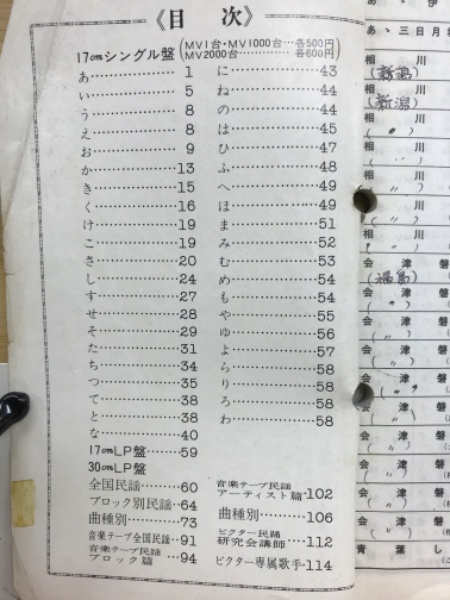 《目 次》
17cmシングル盤(MV1台・MV1000台…各500円
MV2000台…………各600円)
あ…………………1
い…………………5
う…………………8
え…………………8
お…………………9
か…………………13
き…………………15
く…………………16
け…………………19
こ…………………19
さ…………………20
し…………………24
す…………………27
せ…………………28
そ…………………29
た…………………31
ち…………………34
つ…………………35
て…………………38
と…………………38
な…………………40
17cmLP盤………59
30cmLP盤
全国民謡………60
ブロック別民謡…64
曲種別…………73
音楽テープ全国民謡…91
音楽テープ民謡
ブロック篇……94
に…………………43
ね…………………44
の…………………44
は…………………45
ひ…………………47
ふ…………………48
へ…………………49
ほ…………………49
ま…………………51
み…………………52
む…………………53
め…………………54
も…………………54
や…………………55
ゆ…………………56
よ…………………57
ら…………………58
り…………………58
ろ…………………58
わ…………………58
音楽テープ民謡
アーティスト篇…102
曲種別…………106
ビクター民謡
研究会講師……112
ビクター専属歌手…114
あゝ三日月
相 川
(新潟)
相 川
(新潟)
相 川
(〃)
相 川
(〃)
相 川
(〃)
相 川
(〃)
相 川
(〃)
会 津 磐
(福島)
会 津 磐
(〃)
会 津 磐
(〃)
会 津 磐
(〃)
会 津 磐
(〃)
会 津 磐
(〃)
会 津 磐
(〃)
会 津 磐
(〃)
会 津 磐
(〃)
青 葉 し